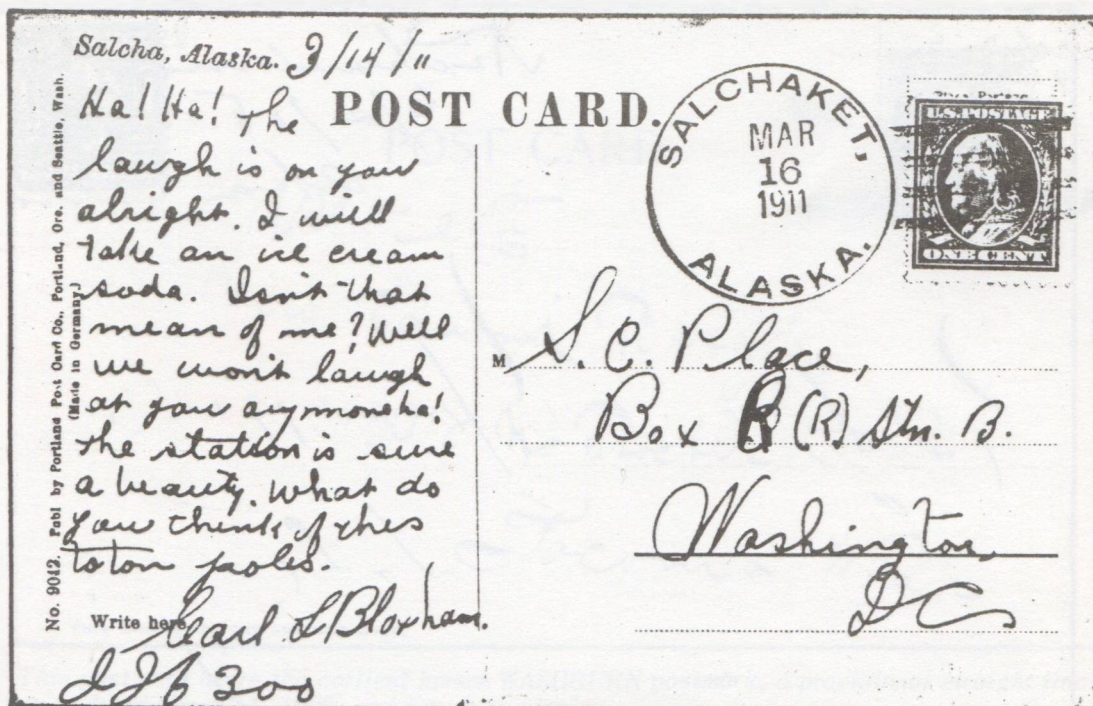 Salcha, Alaska. 3/14/11
POST CARD.
Ha! Ha! The
laugh is on you
alright. I will
take an ice cream
soda. Isn't that
mean of me? Well
we won't laugh
at you anymore ha!
The station is sure
a beauty. What do
you think of thes
toton poles.
Write here
Carl L Bloxham.
300
No. 9012. Publ by Portland Post Card Co., Portland, Ore. and Seattle, Wash.
(Made in Germany.)
SALCHAKET,
MAR
16
1911
ALASKA.
U.S. POSTAGE
ONE CENT
M S. C. Place,
Box R (R) Stn. B.
Washington,
DC